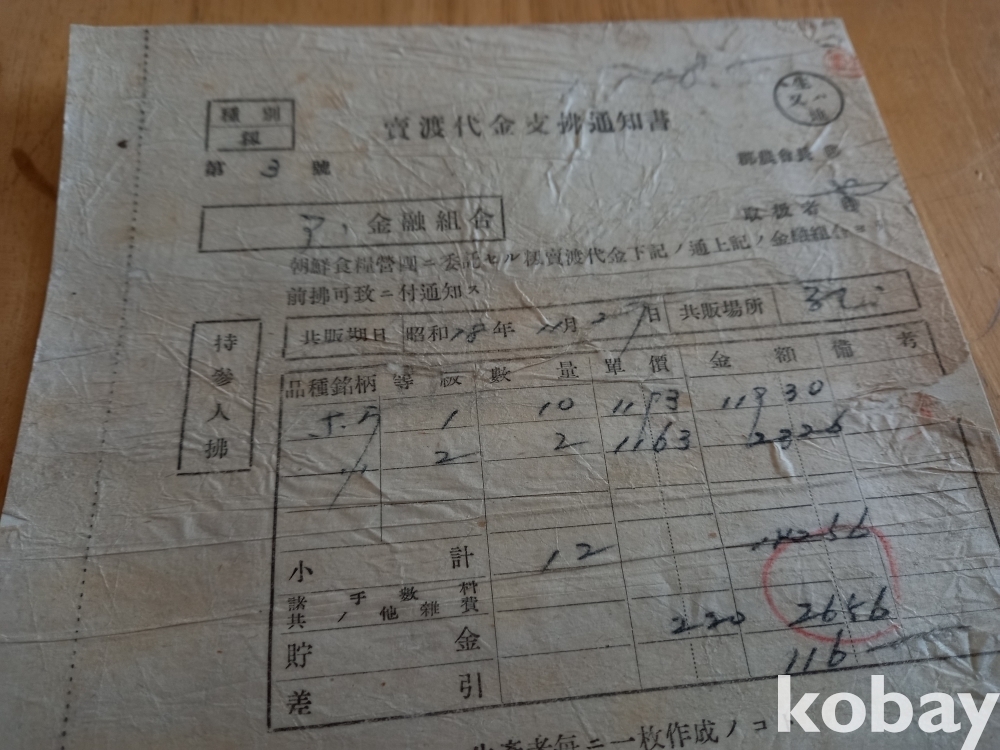 種別
第 3 號
賣渡代金支拂通知書
郡農會長
取扱者
金融組合
朝鮮食糧營團ニ委託セル 賣渡代金下記ノ通上記ノ金融組合ヨ
前拂可致ニ付通知ス
持參人拂
共販期日 昭和18年11月27日 共販場所
品種銘柄 等級 數量 單價 金額 備考
1 10 1193 119 30
2 2 1163 2326
小計 12 14256
諸手數料
共ノ他雜費
貯金 220 2656
差引 116
生產者每ニ一枚作成ノコ
kobay